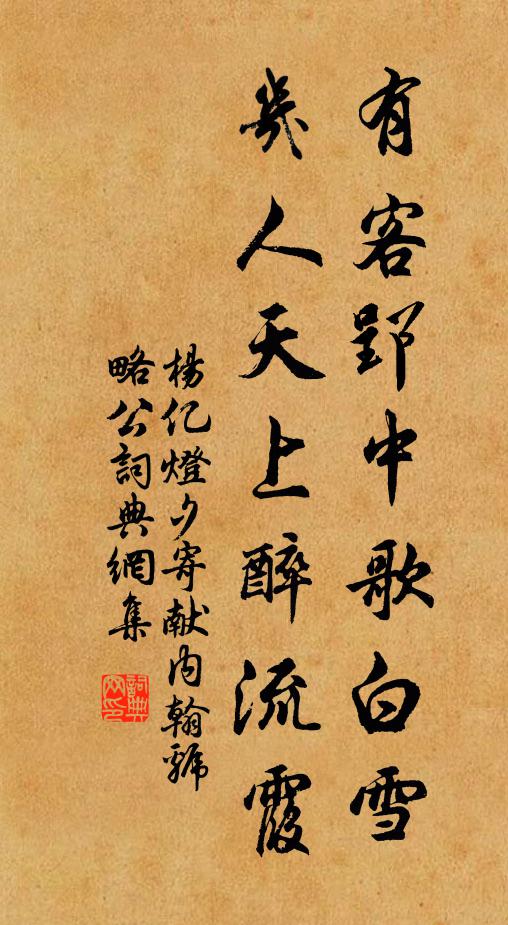 有客郢中歌白雪
幾人天上醉流霞
楊亿燈夕寄献内翰虢
略公詞典網集
詞典
网印